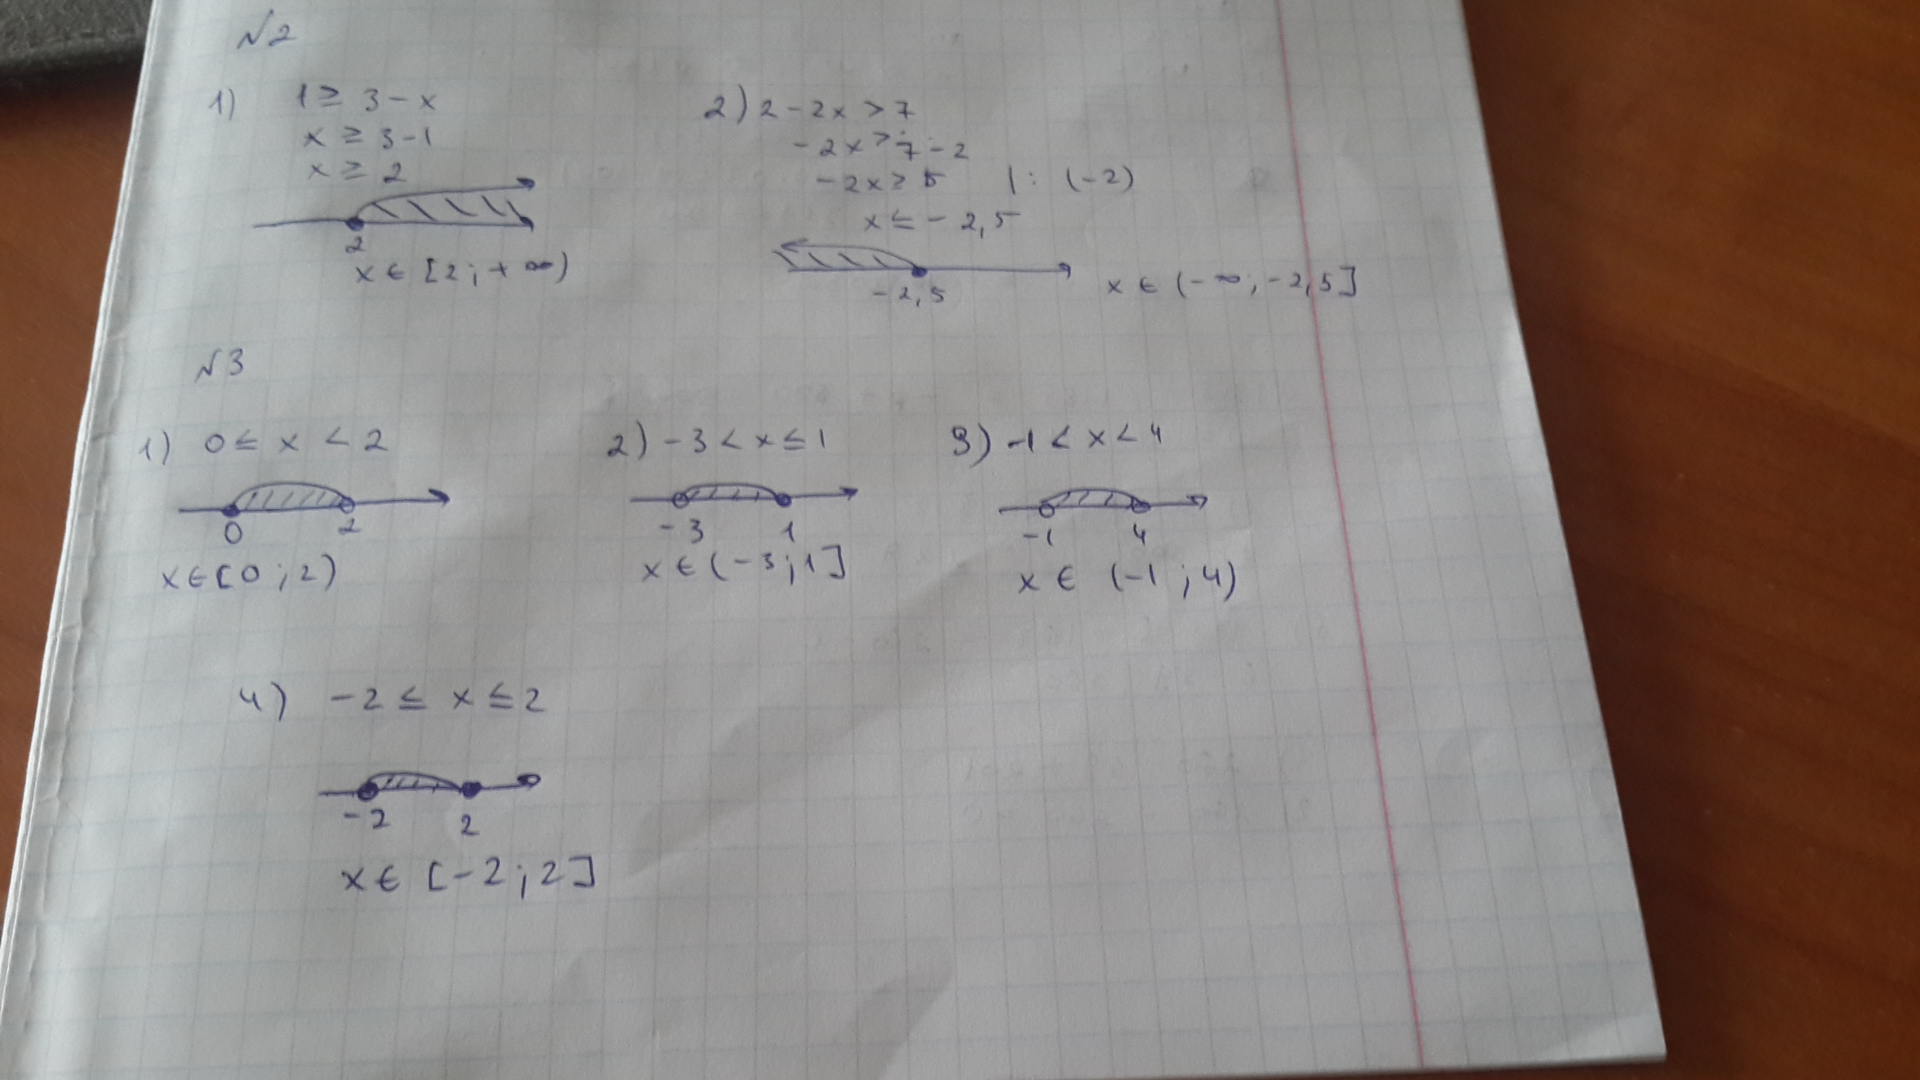 №2
1) 1 ≥ 3 - x
x ≥ 3 - 1
x ≥ 2
2
x ∈ [2; +∞)
2) 2 - 2x > 7
-2x > 7 - 2
-2x ≥ 5 |: (-2)
x ≤ -2,5
-2,5
x ∈ (-∞; -2,5]
№3
1) 0 ≤ x < 2
0 2
x ∈ [0; 2)
2) -3 < x ≤ 1
-3 1
x ∈ (-3; 1]
3) -1 < x < 4
-1 4
x ∈ (-1; 4)
4) -2 ≤ x ≤ 2
-2 2
x ∈ [-2; 2]